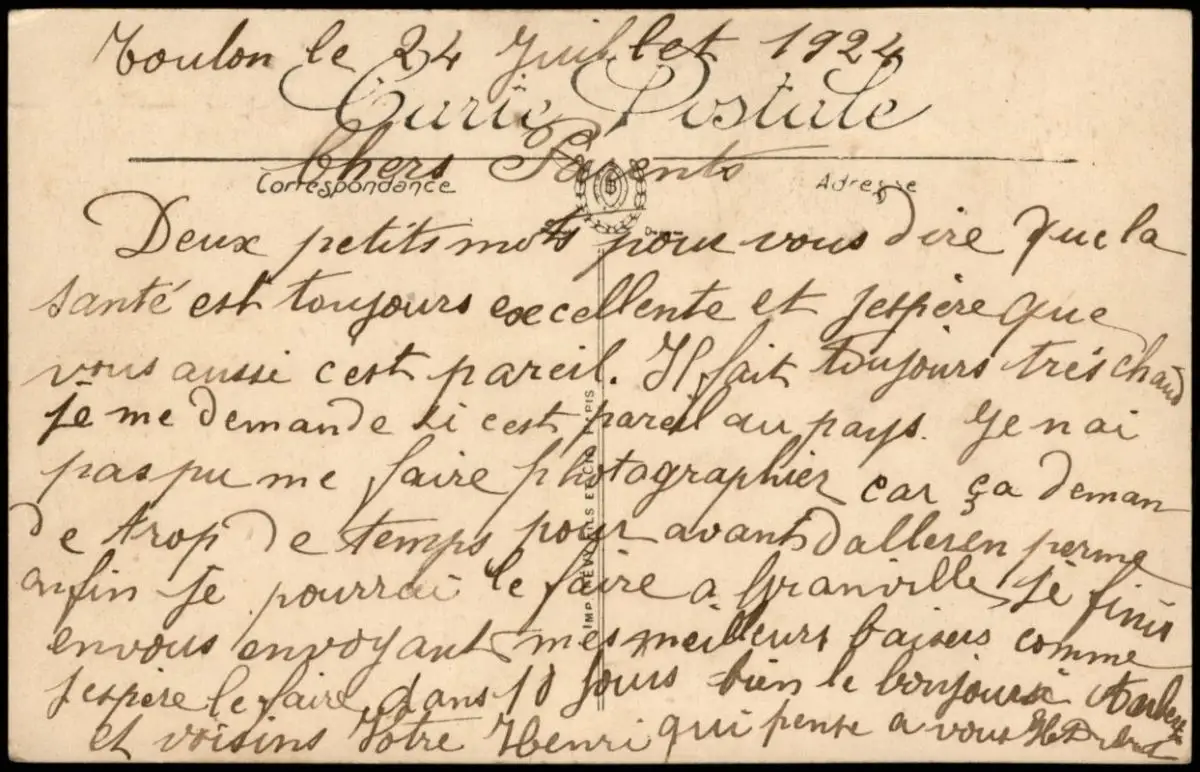 Toulon le 24 Juillet 1924
Carte Postale
Chers Parents
Correspondance
Adresse
Deux petits mots pour vous dire que la
santé est toujours excellente et jespère que
vous aussi cest pareil. Il fait toujours très chaud
je me demande si cest pareil au pays. Je nai
pas pu me faire photographier car ça deman
de trop de temps pour avant daller en perme
enfin je pourrai le faire a Granville je finis
en vous envoyant mes meilleurs baisers comme
jespère le faire dans 10 jours bien le bonjour a
et voisins Votre Henri qui pense a vous
IMP. FILS ET CIE